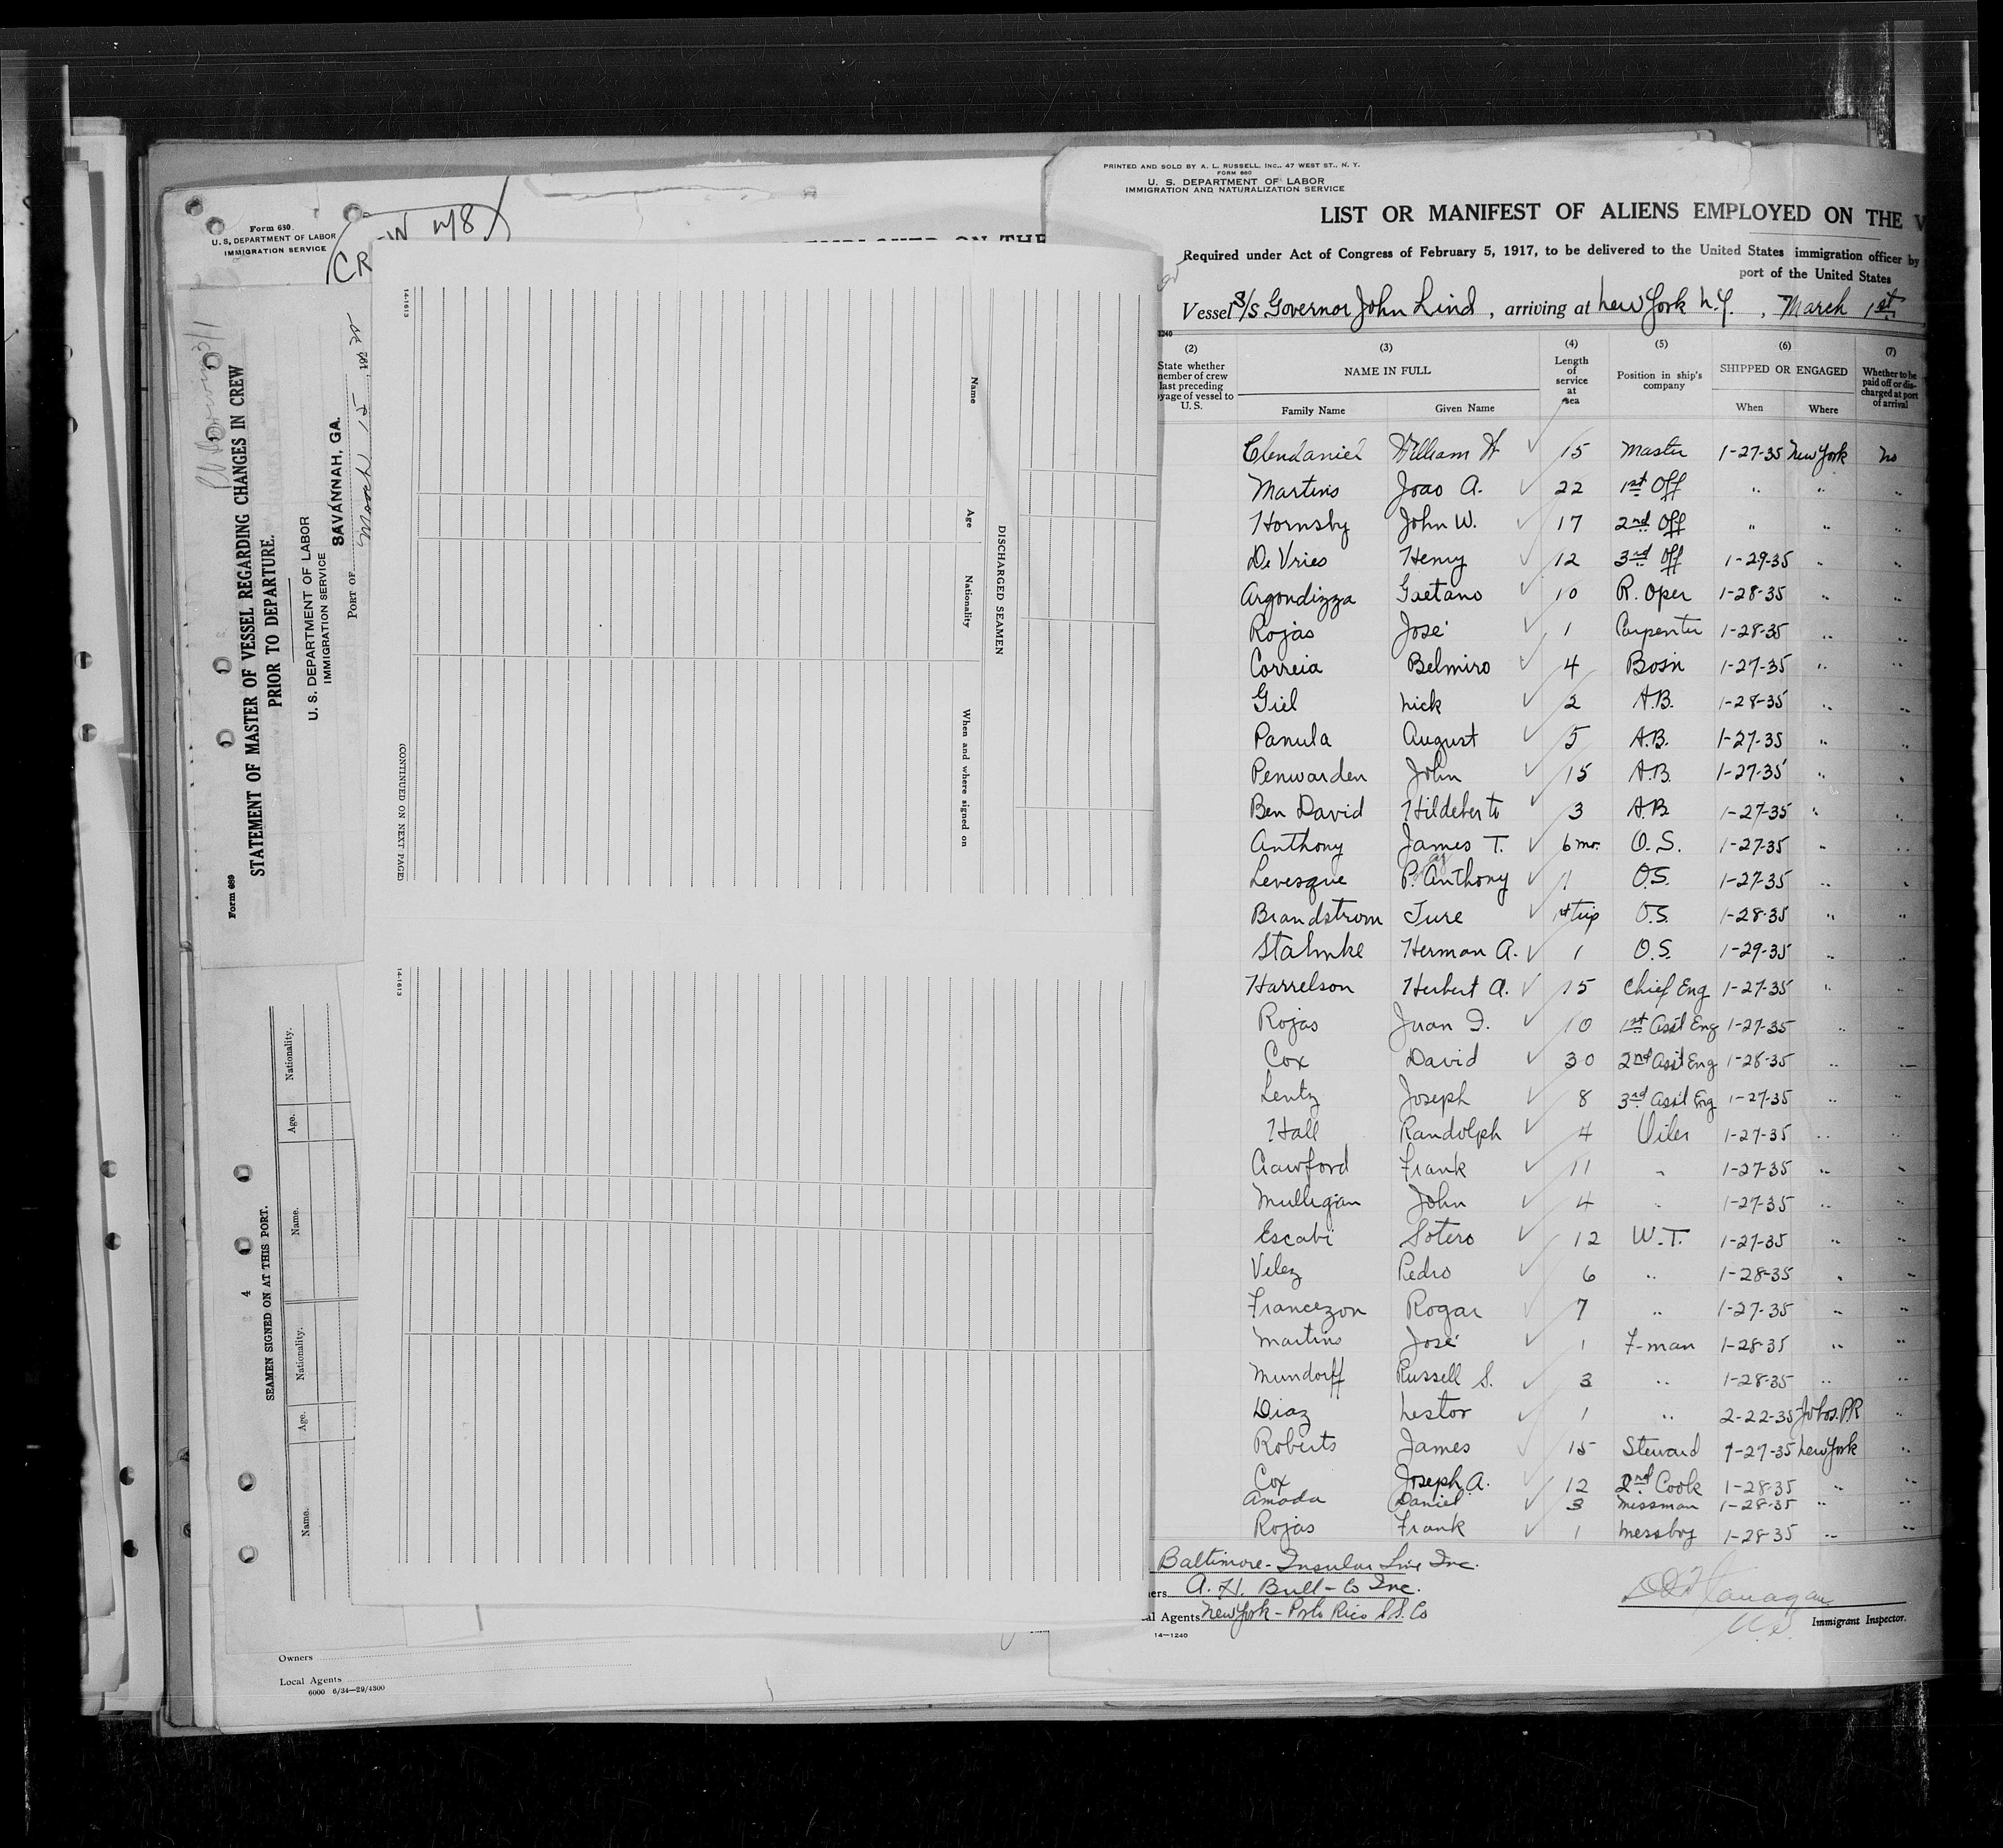 Form 630
U. S. DEPARTMENT OF LABOR
IMMIGRATION SERVICE
CREW
Form 689
STATEMENT OF MASTER OF VESSEL REGARDING CHANGES IN CREW
PRIOR TO DEPARTURE.
U. S. DEPARTMENT OF LABOR
IMMIGRATION SERVICE
SAVANNAH, GA.
PORT OF
March 1st
4
SEAMEN SIGNED ON AT THIS PORT.
Name. Age. Nationality. Name. Age. Nationality.
Owners
Local Agents
6000 6/34—29/4300
14-1613
(CONTINUED ON NEXT PAGE)
DISCHARGED SEAMEN
Name Age Nationality When and where signed on
14-1613
EMPLOYED ON THE
PRINTED AND SOLD BY A. L. RUSSELL, INC., 47 WEST ST., N. Y.
FORM 680
U. S. DEPARTMENT OF LABOR
IMMIGRATION AND NATURALIZATION SERVICE
LIST OR MANIFEST OF ALIENS EMPLOYED ON THE V
Required under Act of Congress of February 5, 1917, to be delivered to the United States immigration officer by
port of the United States
Vessel S/S Governor John Lind, arriving at New York N.Y., March 1st
1240
(2) (3) (4) (5) (6) (7)
State whether member of crew last preceding voyage of vessel to U. S.
NAME IN FULL
Family Name Given Name
Length of service at sea
Position in ship's company
SHIPPED OR ENGAGED
When Where
Whether to be paid off or discharged at port of arrival
Clendaniel William H 15 Master 1-27-35 New York no
Martins Joao A. 22 1st Off " " "
Hornsby John W. 17 2nd Off " " "
De Vries Henry 12 3rd Off 1-29-35 " "
Argondizza Gaetano 10 R. Oper 1-28-35 " "
Rojas José 1 Carpenter 1-28-35 " "
Correia Belmiro 4 Bosn 1-27-35 " "
Giel Nick 2 A.B. 1-28-35 " "
Panula August 5 A.B. 1-27-35 " "
Penwarden John 15 A.B. 1-27-35 " "
Ben David Hildeberto 3 A.B 1-27-35 " "
Anthony James T. 6 mo. O.S. 1-27-35 " "
Levesque P. Anthony 1 O.S. 1-27-35 " "
Brandstrom Ture 1st trip O.S. 1-28-35 " "
Stahnke Herman A. 1 O.S. 1-29-35 " "
Harrelson Herbert A. 15 Chief Eng 1-27-35 " "
Rojas Juan I. 10 1st Asst Eng 1-27-35 " "
Cox David 30 2nd Asst Eng 1-28-35 " "
Lentz Joseph 8 3rd Asst Eng 1-27-35 " "
Hall Randolph 4 Oiler 1-27-35 " "
Crawford Frank 11 " 1-27-35 " "
Mulligan John 4 " 1-27-35 " "
Escabi Sotero 12 W.T. 1-27-35 " "
Velez Pedro 6 " 1-28-35 " "
Francezon Rogar 7 " 1-27-35 " "
Martins José 1 F-man 1-28-35 " "
Mundorff Russell S. 3 " 1-28-35 " "
Diaz Nestor 1 " 2-22-35 Jobos. PR "
Roberts James 15 Steward 1-27-35 New York "
Cox Joseph A. 12 2nd Cook 1-28-35 " "
Amada Daniel 3 Messman 1-28-35 " "
Rojas Frank 1 Messboy 1-28-35 " "
Baltimore-Insular Line Inc.
ers A. H. Bull-Co Inc.
al Agents New York-Porto Rico S.S. Co
14—1240
Immigrant Inspector.